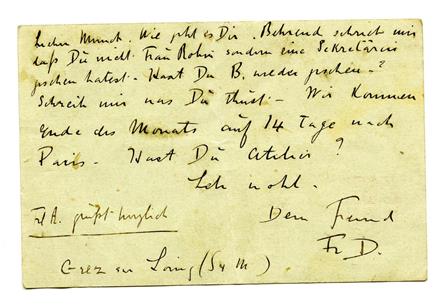 Lieber Munch. Wie geht es Dir. Behrend schreibt mir
daß Du nicht Frau Rohn sondern eine Sekretärin
gesehen hatest. Hast Du B. wieder gesehen?
Schreib mir was Du thust. Wir kommen
Ende des Monats auf 14 Tage nach
Paris. Hast Du Atelier?
Leb wohl.
Dein Freund
Fr D.
Frl A. grüßt herzlich
Grez sur Loing (S & M)